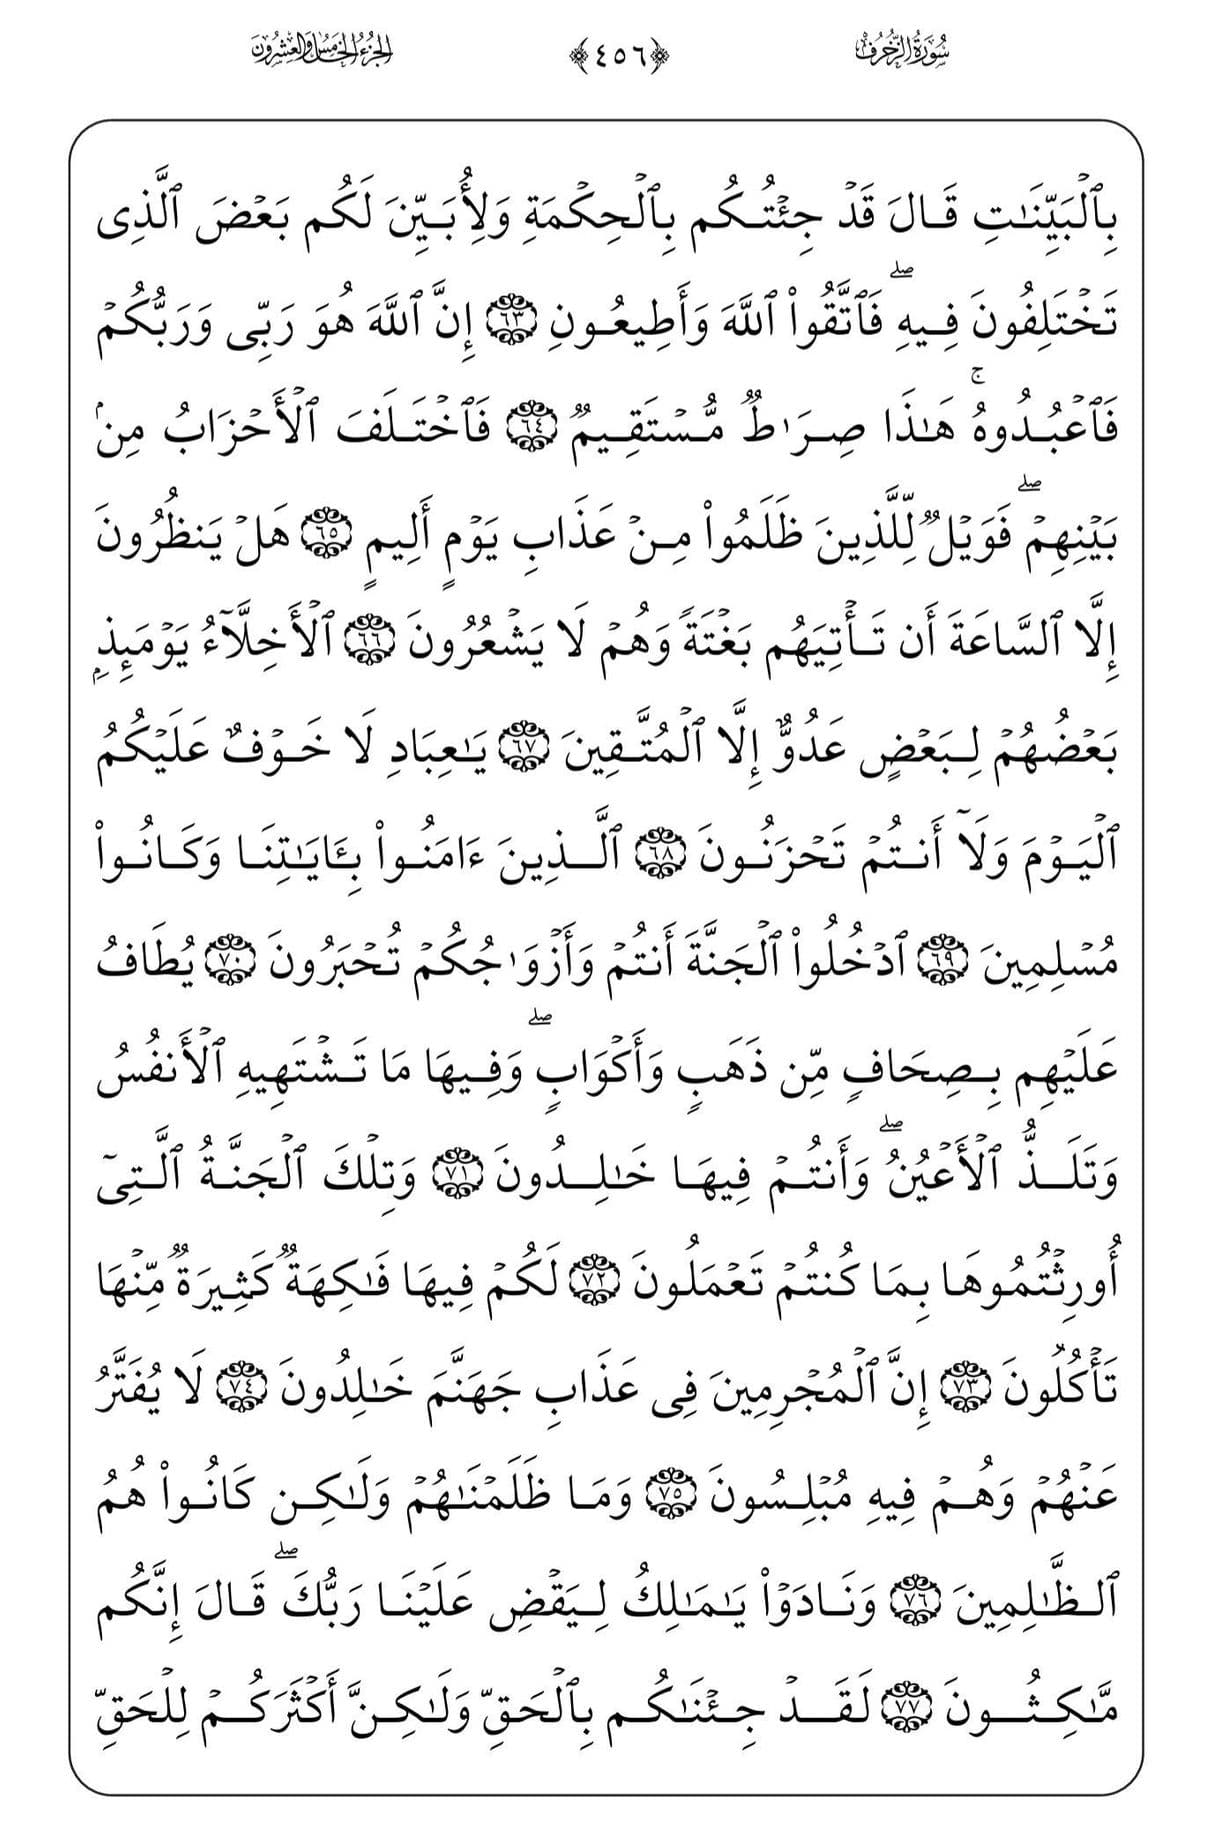 سُورَةُ الزُّخْرُفِ ﴿٤٥٦﴾ الجُزْءُ الخَامِسُ وَالعِشْرُونَ
بِٱلْبَيِّنَـٰتِ قَالَ قَدْ جِئْتُكُم بِٱلْحِكْمَةِ وَلِأُبَيِّنَ لَكُم بَعْضَ ٱلَّذِى
تَخْتَلِفُونَ فِيهِ ۖ فَٱتَّقُوا۟ ٱللَّهَ وَأَطِيعُونِ ٦٣ إِنَّ ٱللَّهَ هُوَ رَبِّى وَرَبُّكُمْ
فَٱعْبُدُوهُ ۚ هَـٰذَا صِرَٰطٌ مُّسْتَقِيمٌ ٦٤ فَٱخْتَلَفَ ٱلْأَحْزَابُ مِنۢ
بَيْنِهِمْ ۖ فَوَيْلٌ لِّلَّذِينَ ظَلَمُوا۟ مِنْ عَذَابِ يَوْمٍ أَلِيمٍ ٦٥ هَلْ يَنظُرُونَ
إِلَّا ٱلسَّاعَةَ أَن تَأْتِيَهُم بَغْتَةً وَهُمْ لَا يَشْعُرُونَ ٦٦ ٱلْأَخِلَّآءُ يَوْمَئِذٍۭ
بَعْضُهُمْ لِبَعْضٍ عَدُوٌّ إِلَّا ٱلْمُتَّقِينَ ٦٧ يَـٰعِبَادِ لَا خَوْفٌ عَلَيْكُمُ
ٱلْيَوْمَ وَلَآ أَنتُمْ تَحْزَنُونَ ٦٨ ٱلَّذِينَ ءَامَنُوا۟ بِـَٔايَـٰتِنَا وَكَانُوا۟
مُسْلِمِينَ ٦٩ ٱدْخُلُوا۟ ٱلْجَنَّةَ أَنتُمْ وَأَزْوَٰجُكُمْ تُحْبَرُونَ ٧٠ يُطَافُ
عَلَيْهِم بِصِحَافٍ مِّن ذَهَبٍ وَأَكْوَابٍ ۖ وَفِيهَا مَا تَشْتَهِيهِ ٱلْأَنفُسُ
وَتَلَذُّ ٱلْأَعْيُنُ ۖ وَأَنتُمْ فِيهَا خَـٰلِدُونَ ٧١ وَتِلْكَ ٱلْجَنَّةُ ٱلَّتِىٓ
أُورِثْتُمُوهَا بِمَا كُنتُمْ تَعْمَلُونَ ٧٢ لَكُمْ فِيهَا فَـٰكِهَةٌ كَثِيرَةٌ مِّنْهَا
تَأْكُلُونَ ٧٣ إِنَّ ٱلْمُجْرِمِينَ فِى عَذَابِ جَهَنَّمَ خَـٰلِدُونَ ٧٤ لَا يُفَتَّرُ
عَنْهُمْ وَهُمْ فِيهِ مُبْلِسُونَ ٧٥ وَمَا ظَلَمْنَـٰهُمْ وَلَـٰكِن كَانُوا۟ هُمُ
ٱلظَّـٰلِمِينَ ٧٦ وَنَادَوْا۟ يَـٰمَـٰلِكُ لِيَقْضِ عَلَيْنَا رَبُّكَ ۖ قَالَ إِنَّكُم
مَّـٰكِثُونَ ٧٧ لَقَدْ جِئْنَـٰكُم بِٱلْحَقِّ وَلَـٰكِنَّ أَكْثَرَكُمْ لِلْحَقِّ